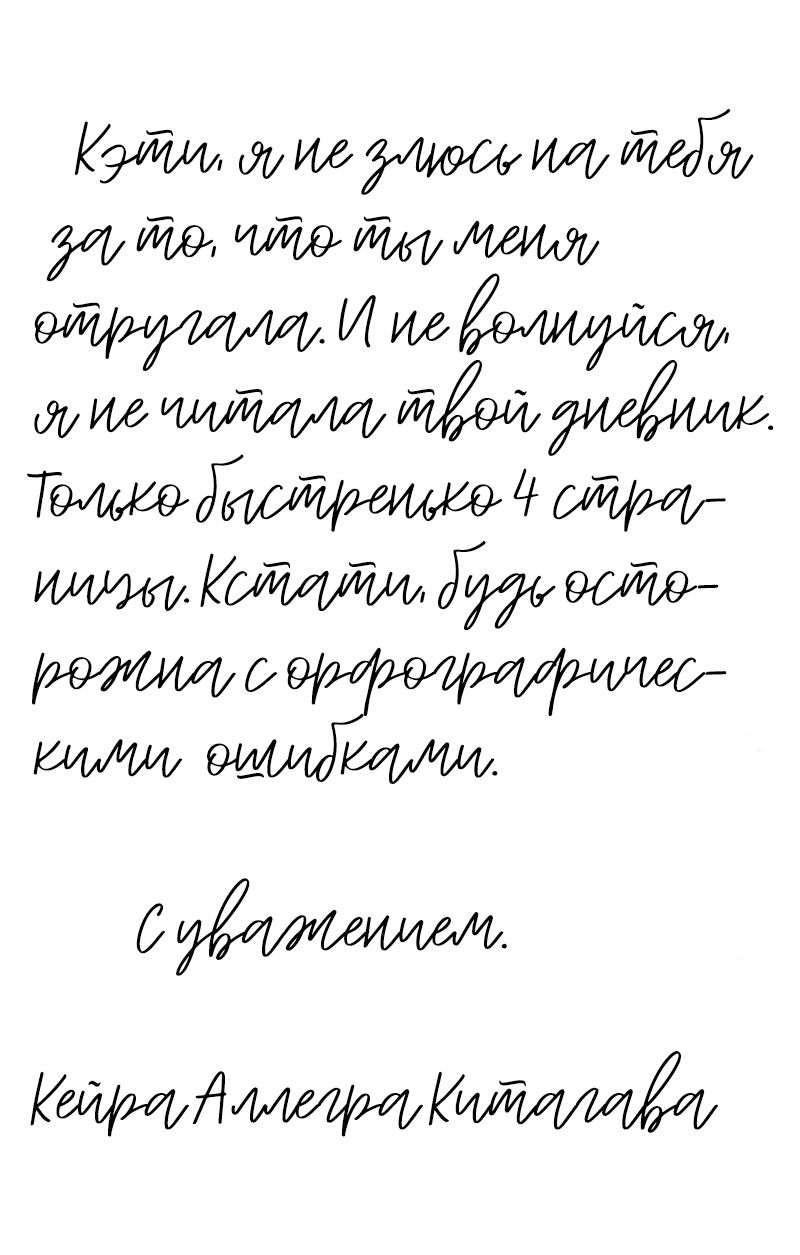 Кэти, я не злюсь на тебя
за то, что ты меня
отругала. И не волнуйся,
я не читала твой дневник.
Только быстренько 4 стра-
ницы. Кстати, будь осто-
рожна с орфографичес-
кими ошибками.
С уважением.
Кейра Аллегра Китагава